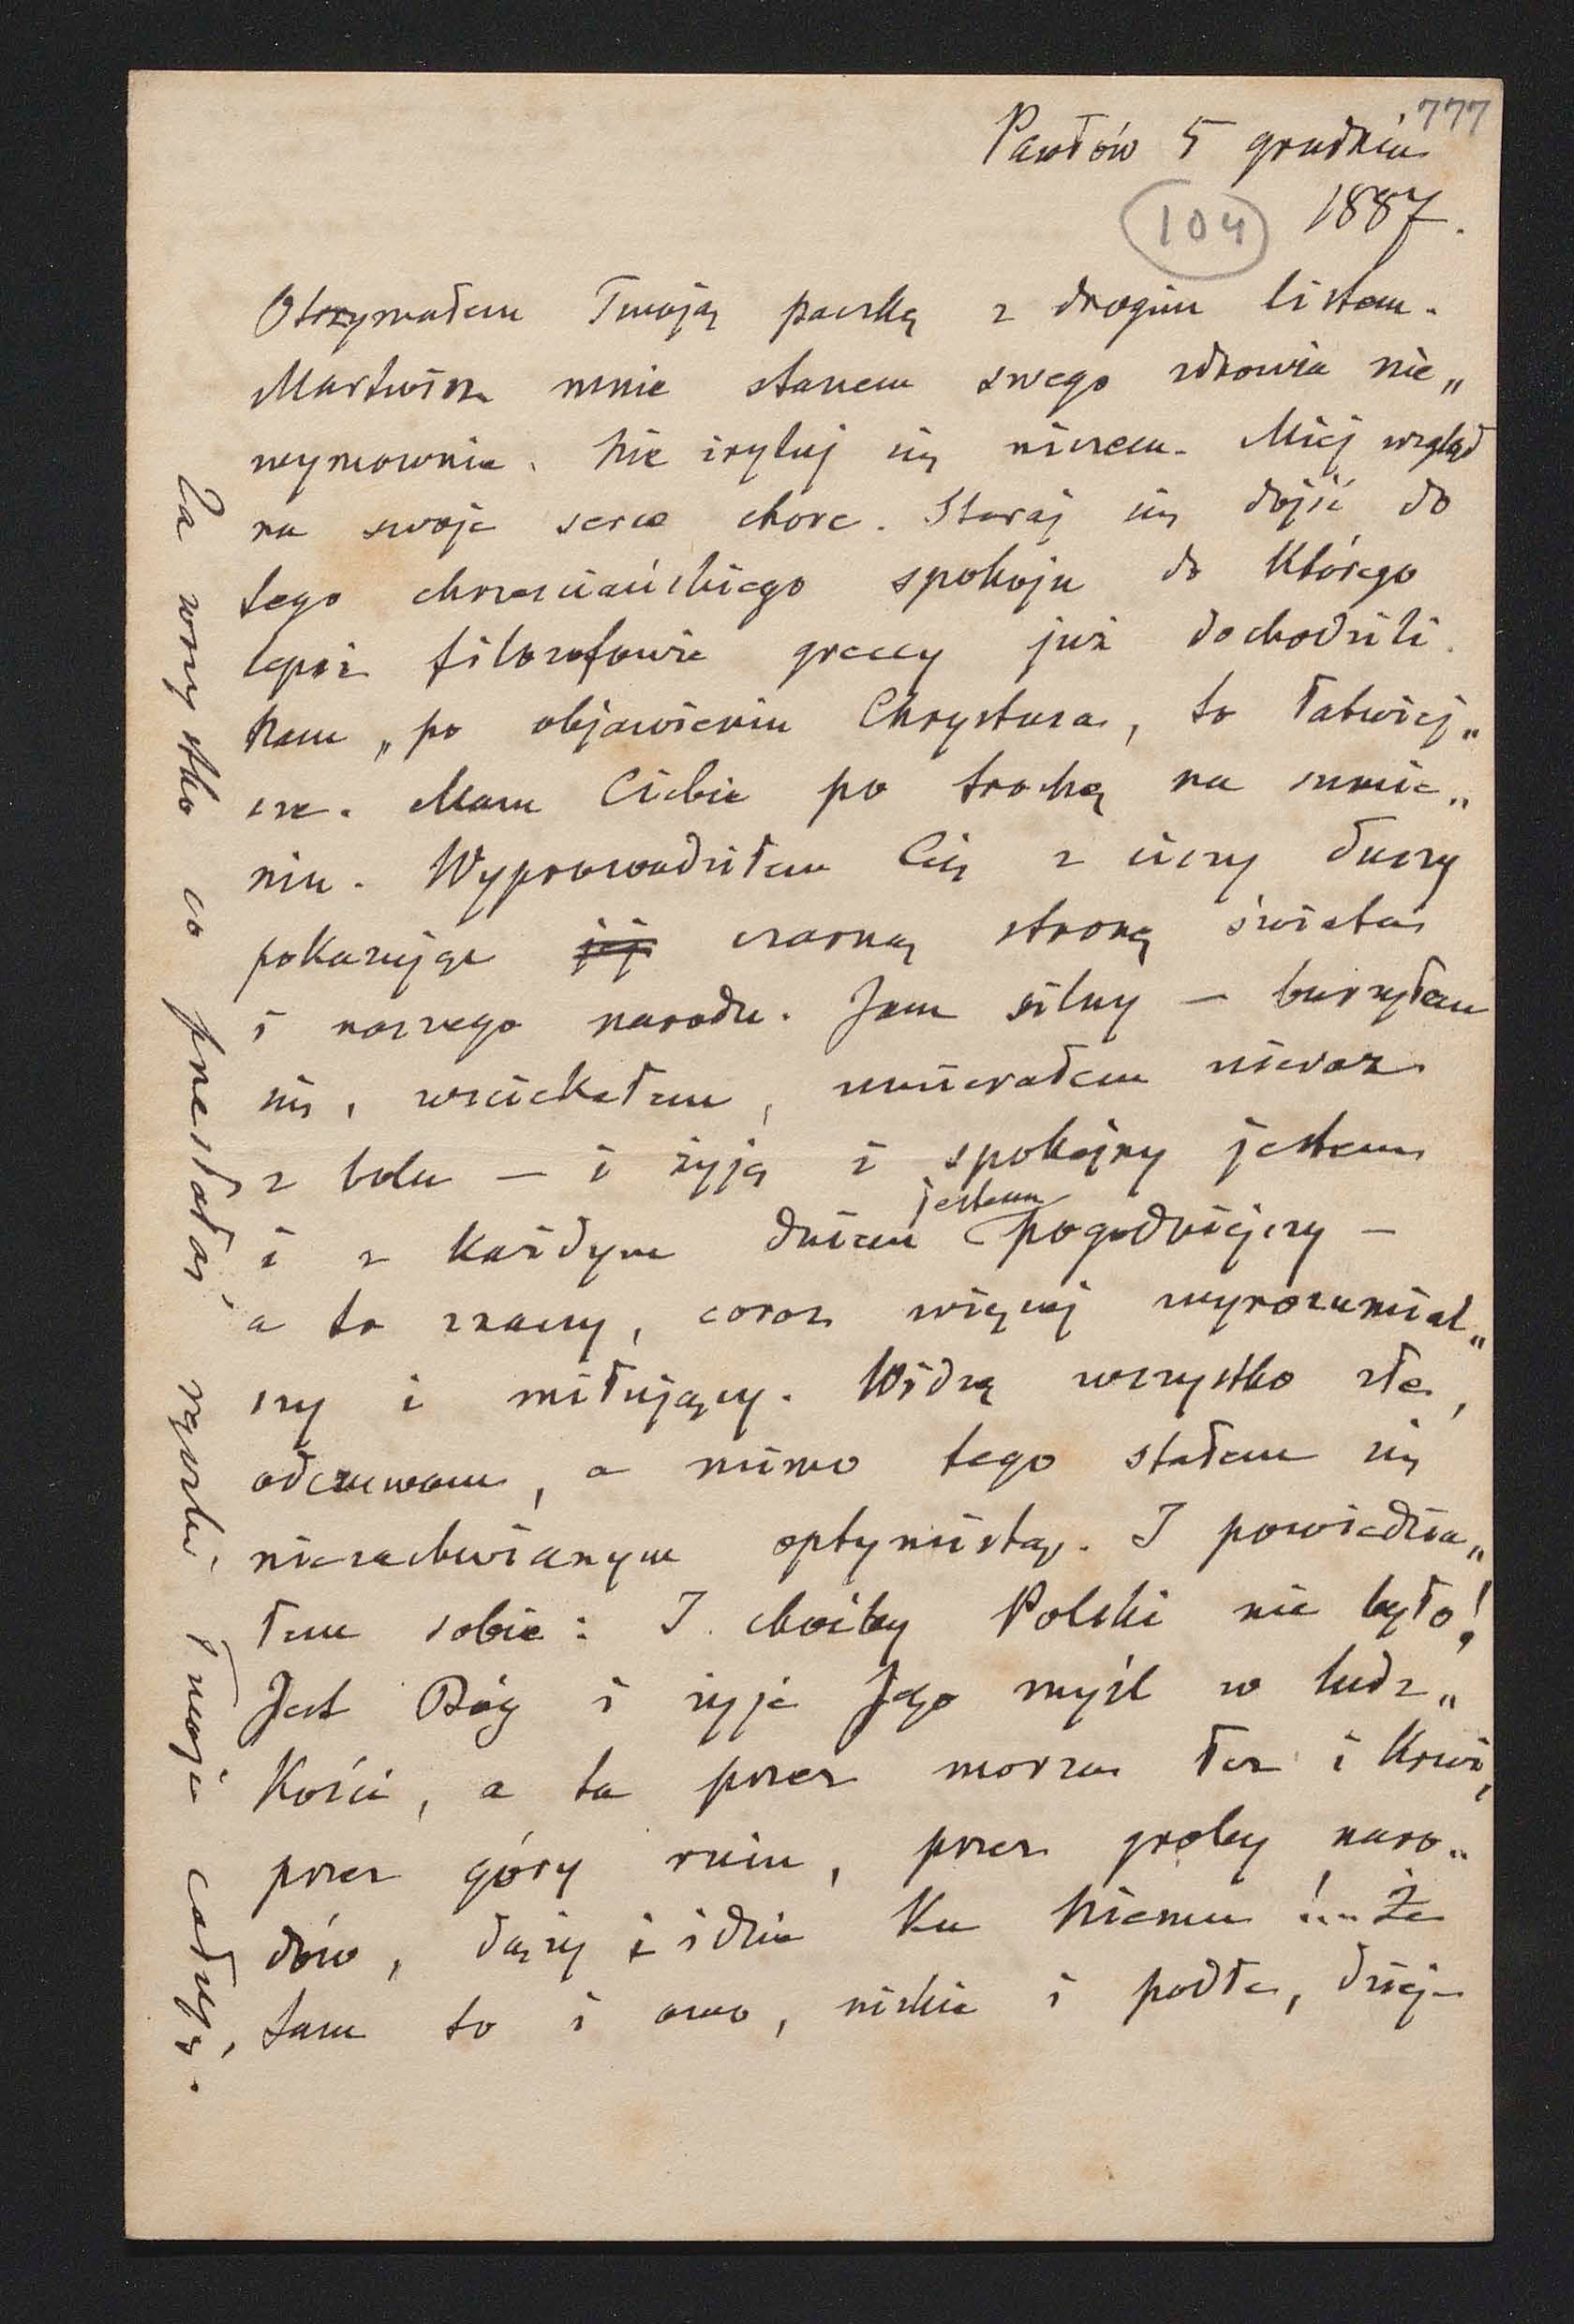 777
Pawłów 5 grudnia
104 1887.
Otrzymałem Twoją paczkę z drogim listem.
Martwisz mnie stanem swego zdrowia nie„
wymownie. Nie irytuj się niczem. Miej wzgląd
na swoje serce chore. Staraj się dojść do
tego chrześciańskiego spokoju do którego
lepsi filozofowie greccy już dochodzili.
Nam „po objawieniu Chrystusa, to łatwiej„
sze. Mam Ciebie po trochę na sumie„
niu. Wyprowadziłem Cię z ciszy duszy
pokazując jej czarną stronę świata
i naszego narodu. Jam silny — burzyłem
się, wściekałem, umierałem nieraz
z bolu — i żyję i spokojny jestem
i z każdym dniem jestem pogodniejszy —
a to znaczy, coraz więcej wyrozumial„
szy i miłujący. Widzę wszystko złe,
odczuwam, a mimo tego stałem się
niezachwianym optymistą. I powiedzia„
łem sobie: I choćby Polski nie było!
Jest Bóg i żyje Jego myśl w ludz„
kości, a ta przez morza łez i krwi,
przez góry ruin, przez groby naro„
dów, dąży i idzie ku Niemu!... Że
tam to i owo, niskie i podłe, dzieje
Za wszystko co przesłałaś rączki Twoje całuję.